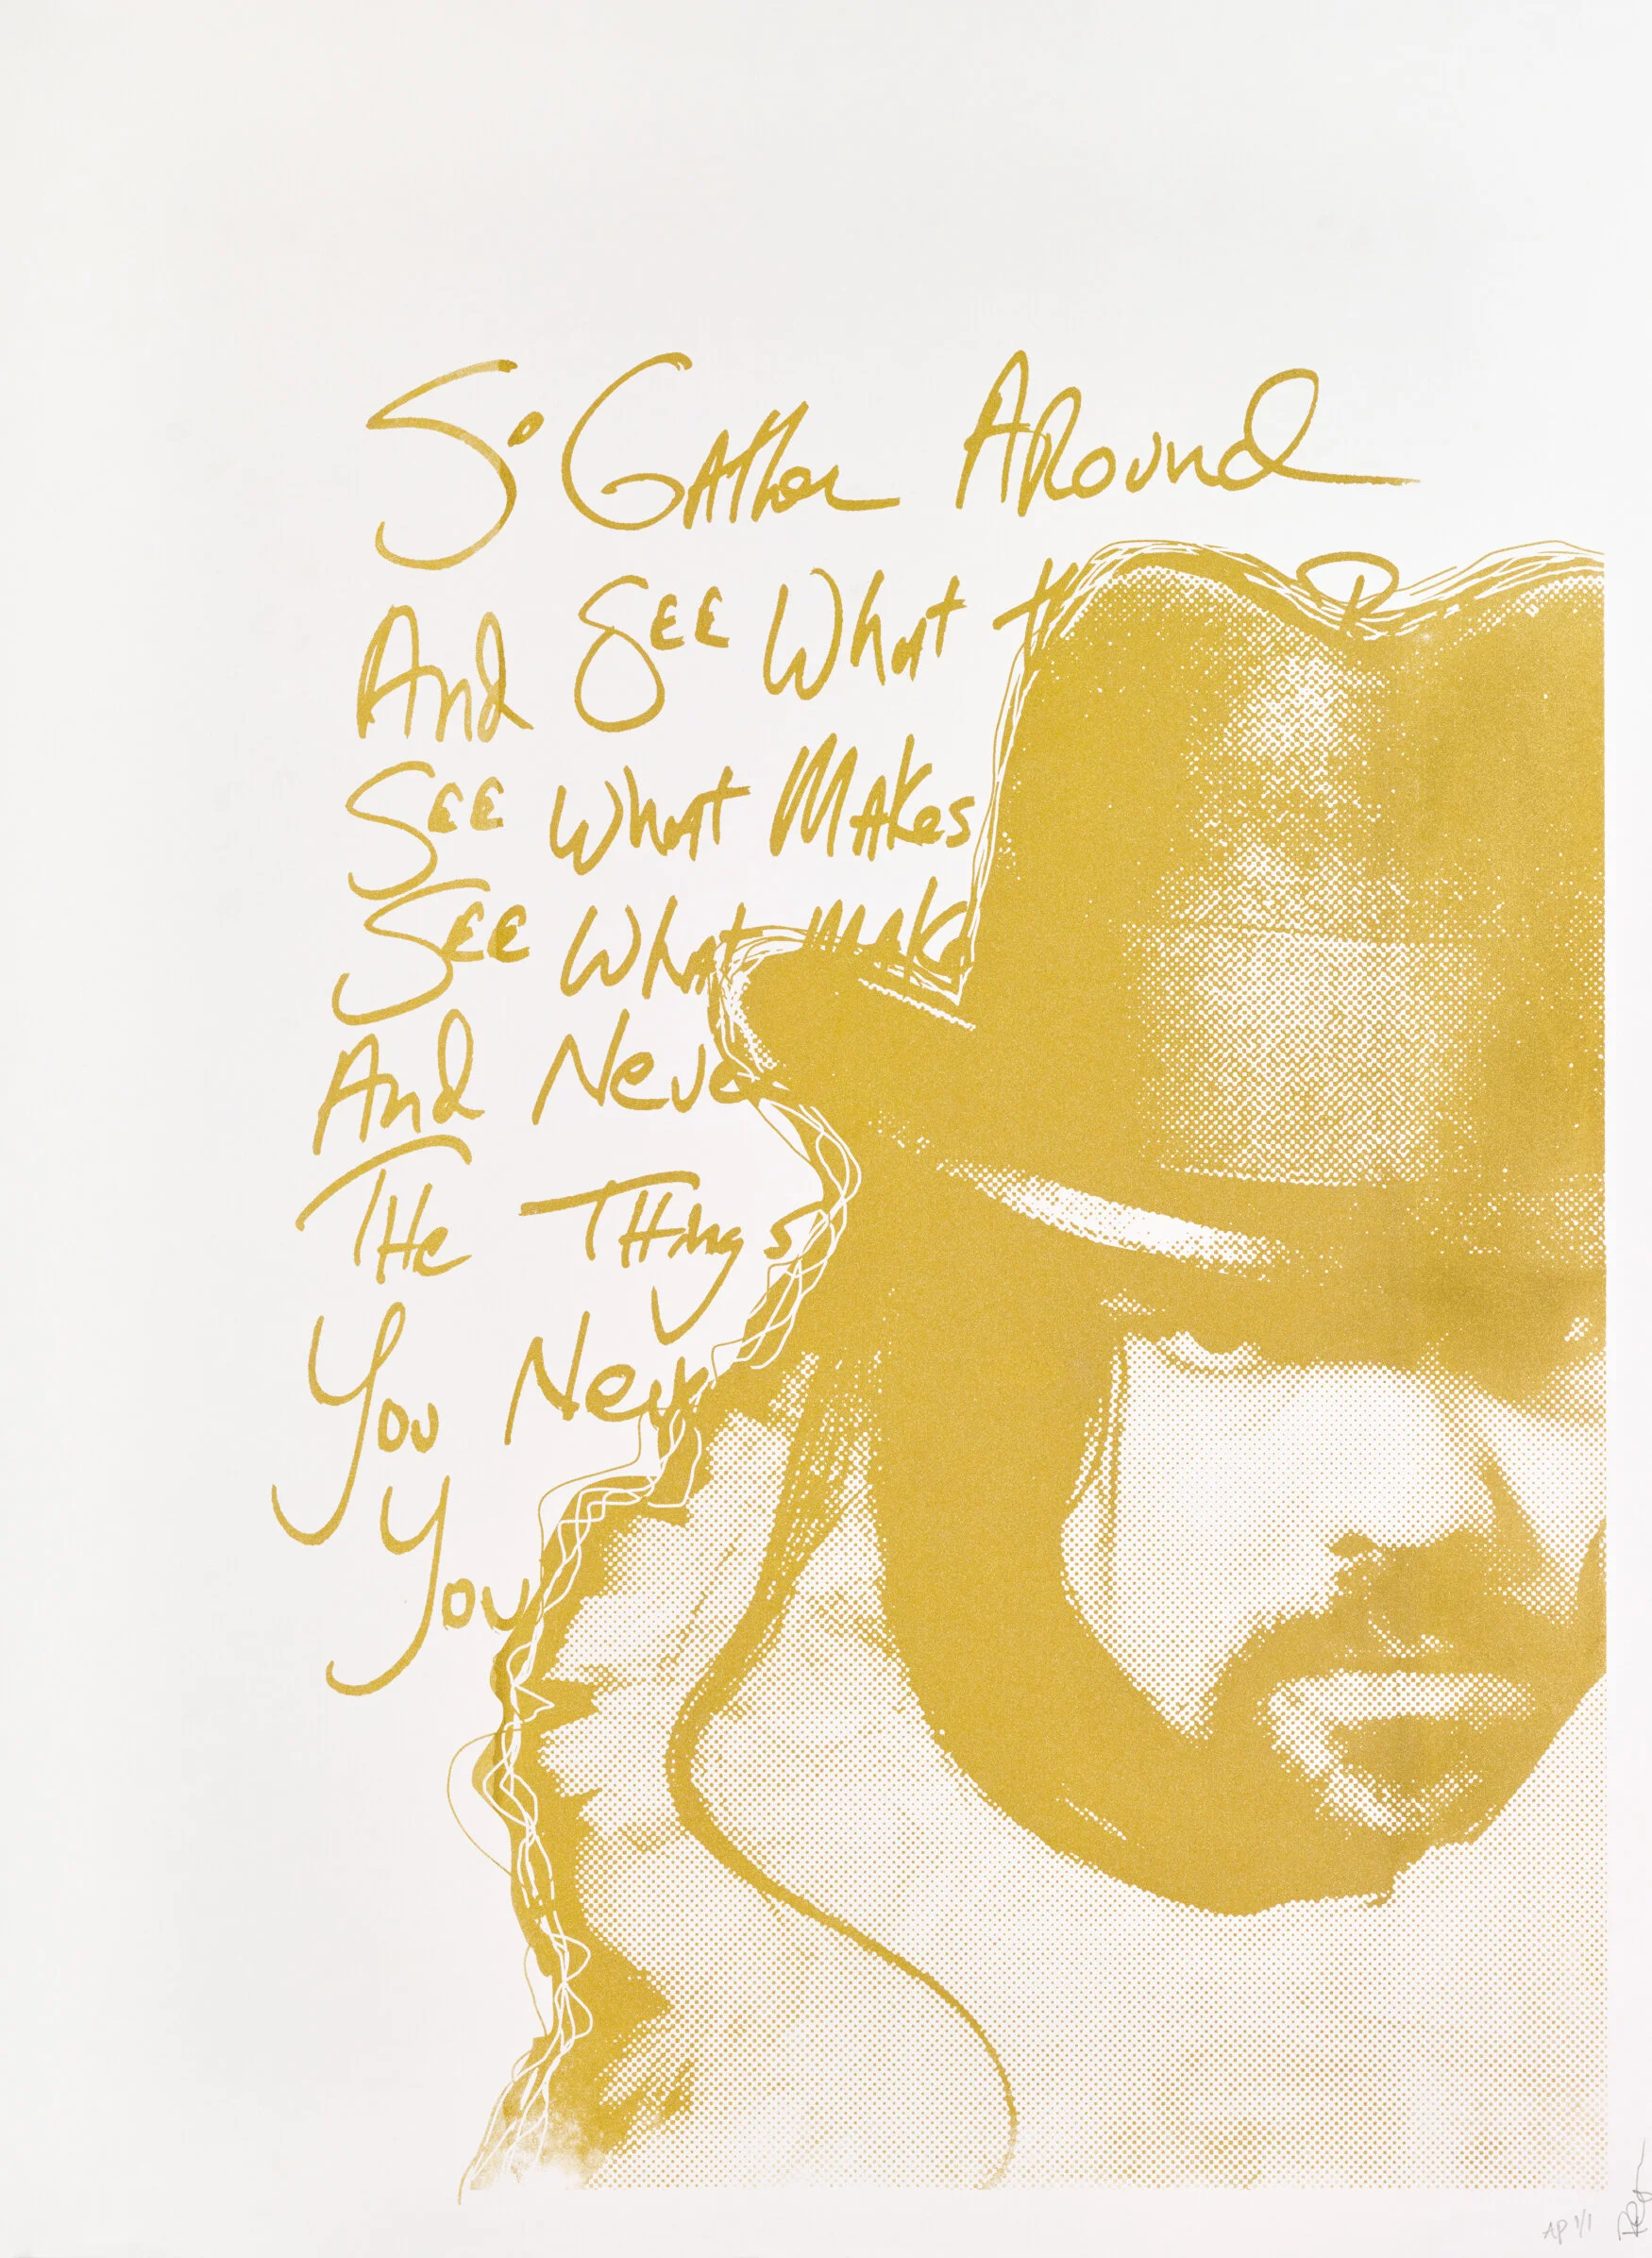 So Gather Around
And See What
See What Makes
See What Mak
And Neve
The Things
You Nev
You
AP 1/1